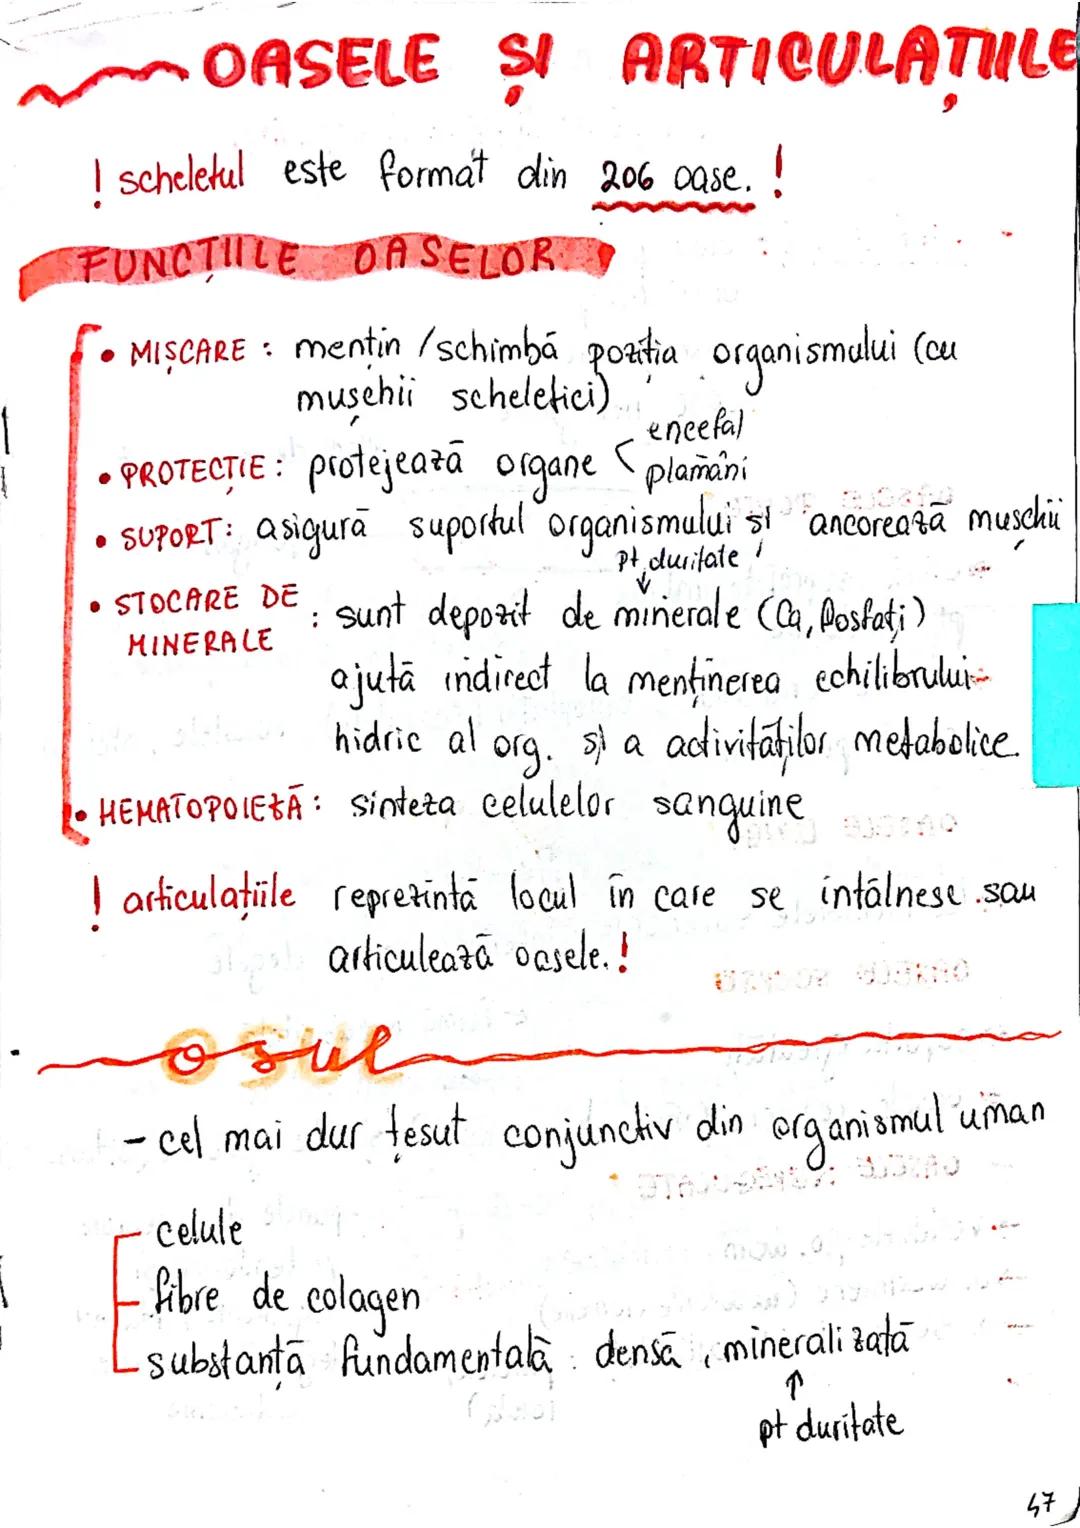 OASELE ȘI ARTICULAȚIILE
! scheletul este format din 206 oase. !
FUNCȚIILE OASELOR
• MIȘCARE : mențin / schimbă poziția organismului (cu
mușchii scheletici)
encefal
• PROTECȚIE : protejează organe < plămâni
• SUPORT : asigură suportul organismului și ancorează mușchii
pt duritate
↓
• STOCARE DE MINERALE : sunt depozit de minerale (Ca, fosfați)
ajută indirect la menținerea echilibrului
hidric al org. și a activităților metabolice.
• HEMATOPOIEZĂ : sinteza celulelor sanguine
! articulațiile reprezintă locul în care se întâlnesc sau
articulează oasele. !
osul
- cel mai dur țesut conjunctiv din organismul uman
celule
fibre de colagen
substanță fundamentală : densă, mineralizată
↑
pt duritate
47